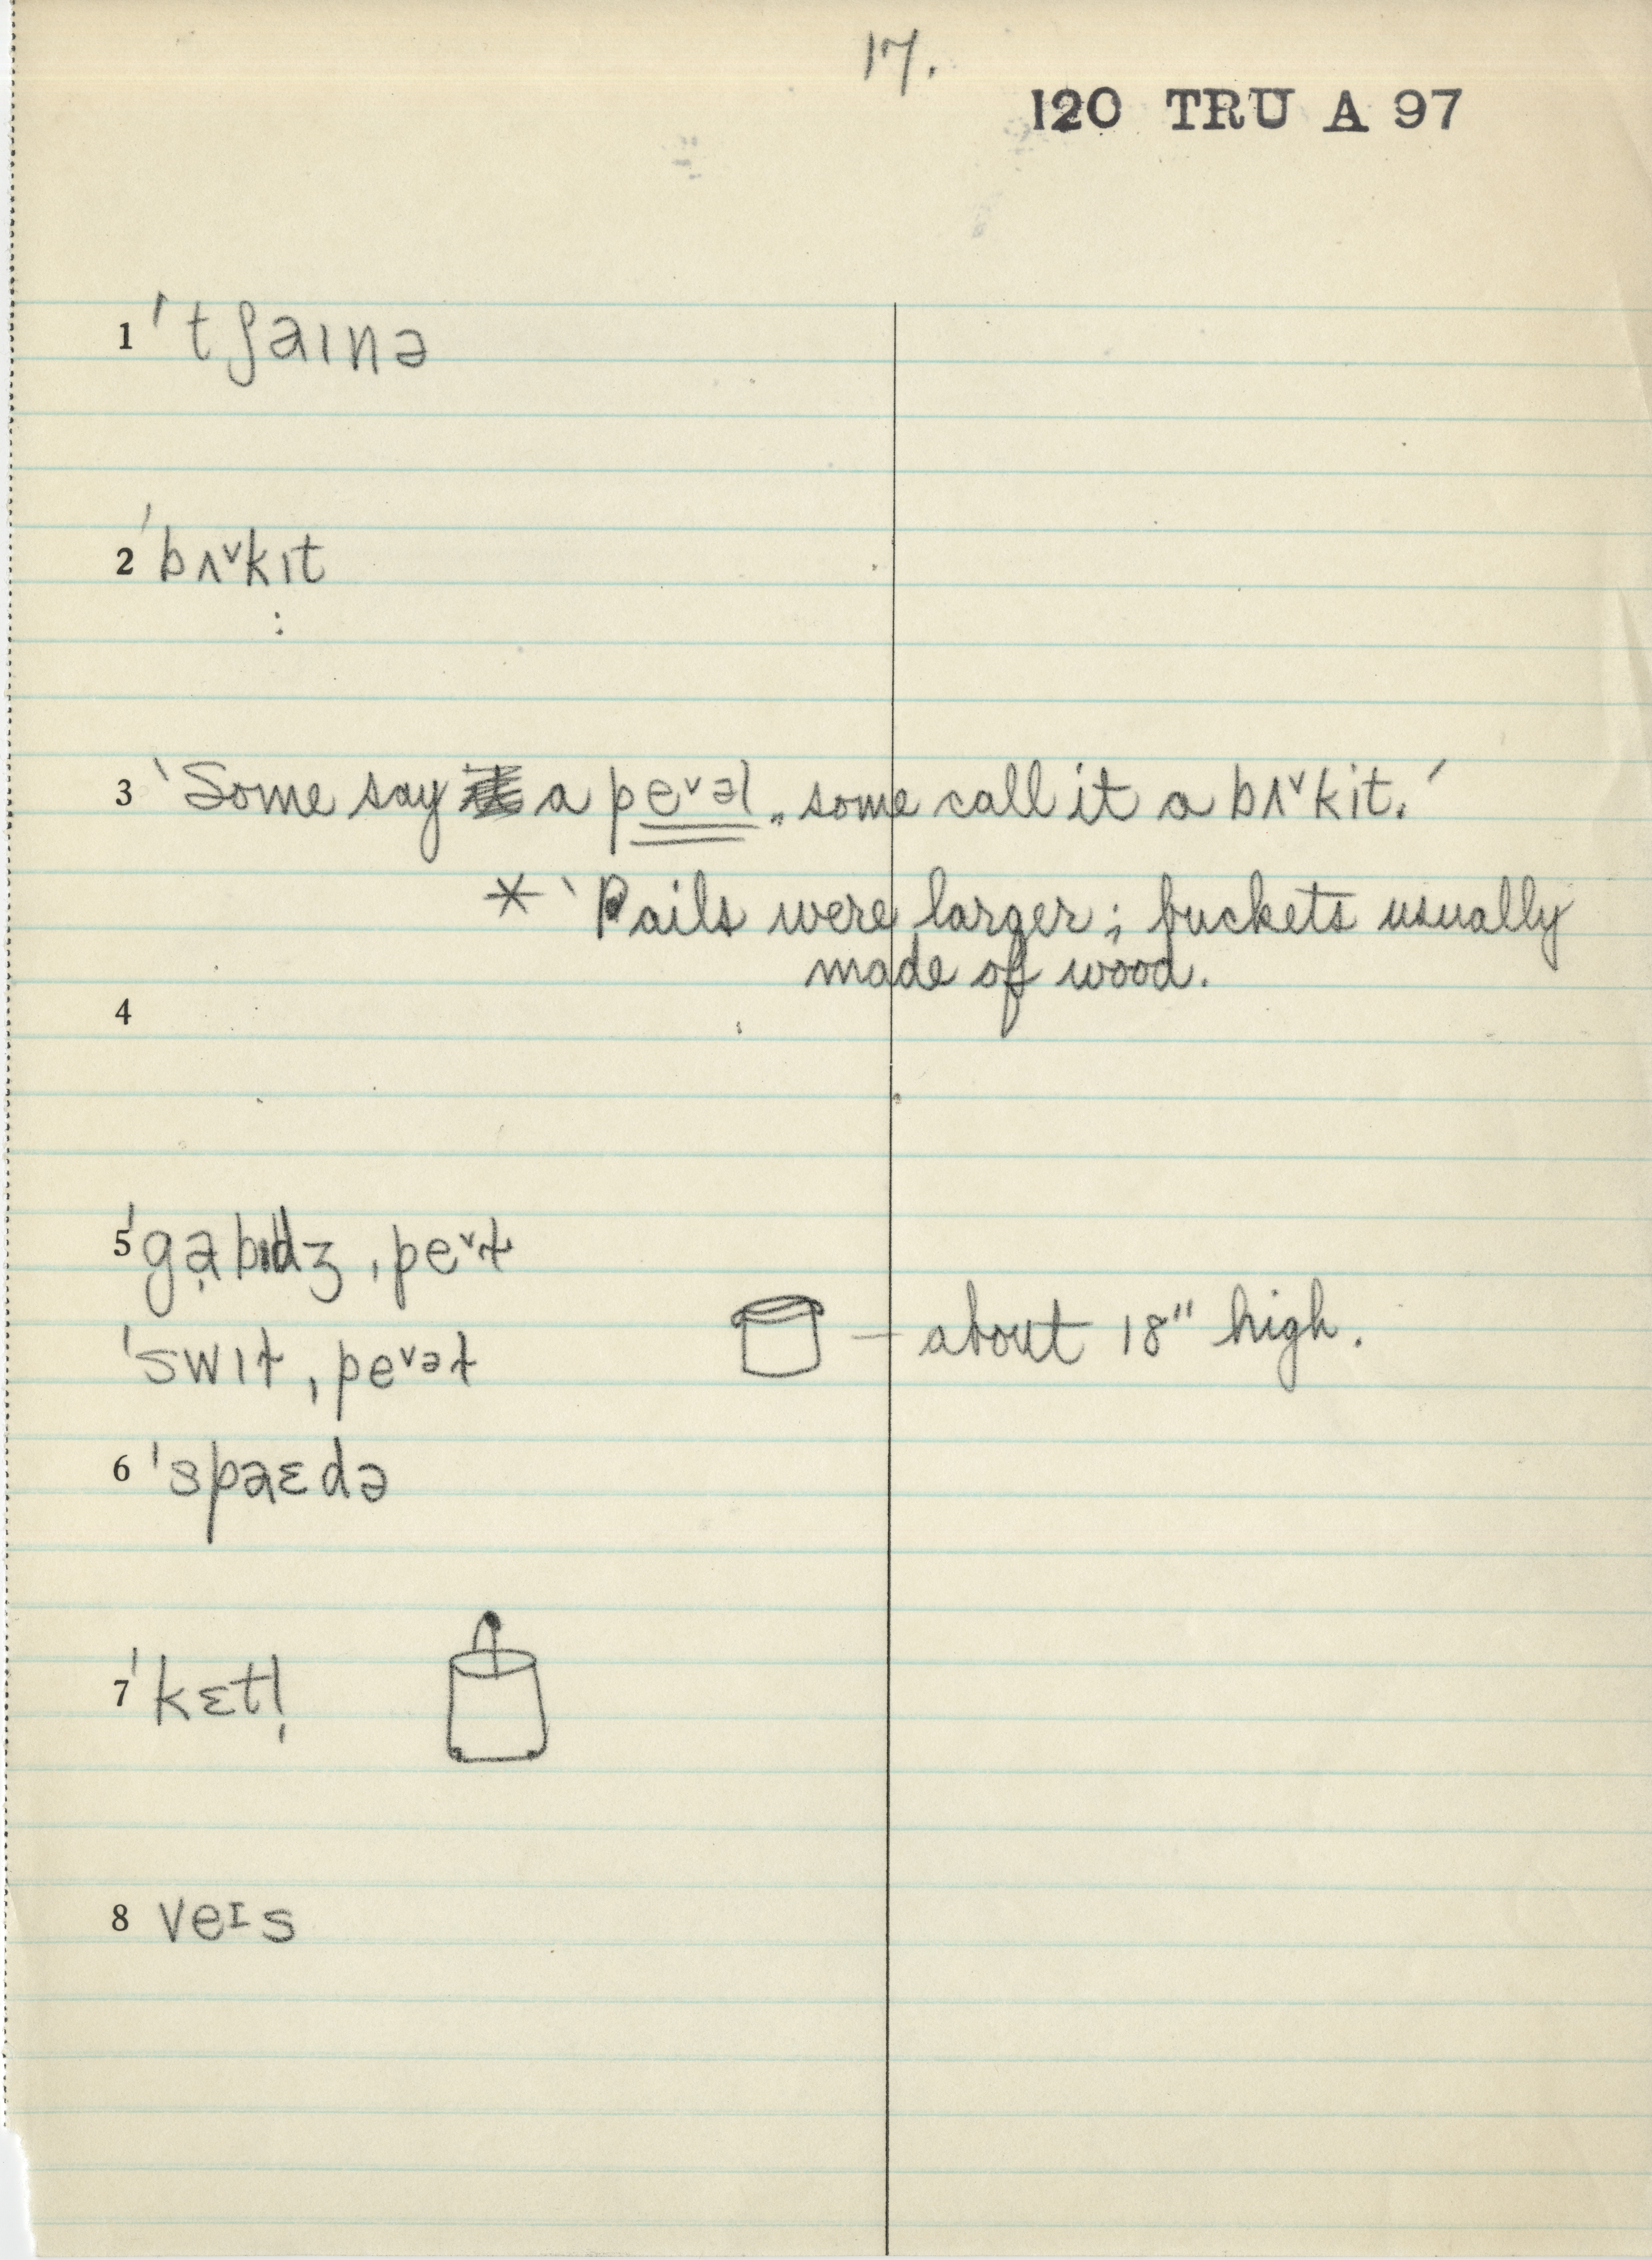 17.
120 TRU A 97
1 ˈtʃaɪnə
2 ˈbʌ˅kɪt
3 ‵Some say a pe˅əl, some call it a bʌ˅kɪt.′
* ‵Pails were larger; buckets usually
made of wood.
4
5 ˈgạbɪdʒ ˌpe˅ɫ
ˈswɪɫ ˌpe˅əɫ
— about 18" high.
6 ˈspaɛdə
7 ˈkɛtl̩
8 veɪs